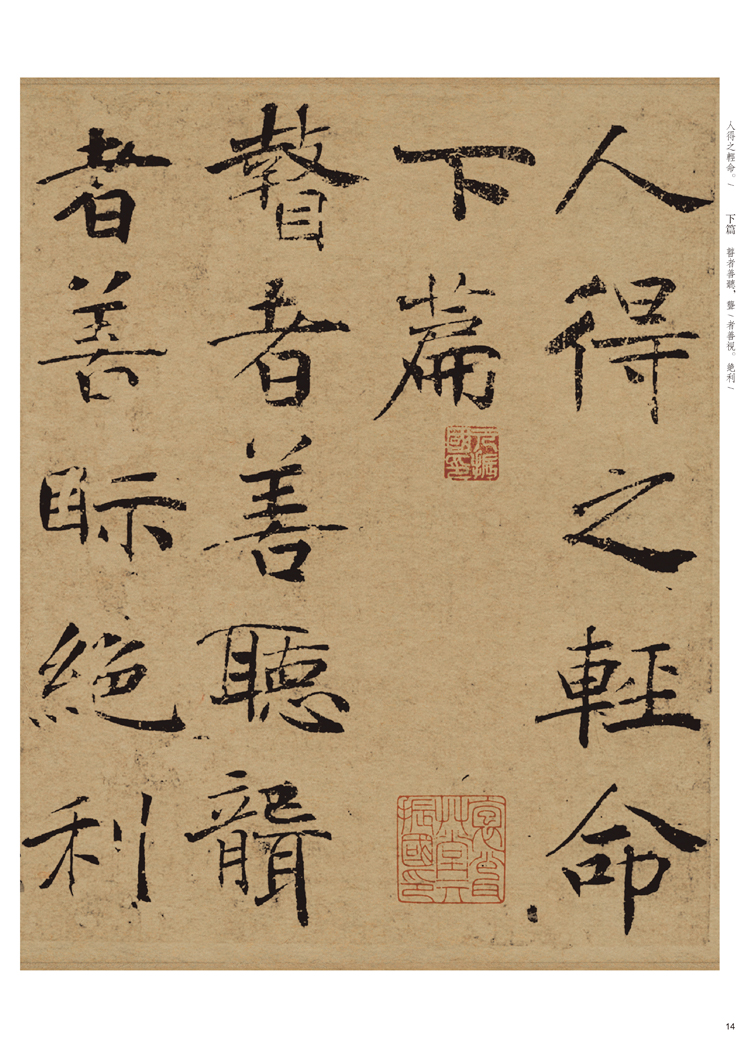 人得之輕命。/ 下篇 瞽者善聽，聾/者善視。絕利/
人得之輕命
下篇
瞽者善聽聾
者善眎絕利
14